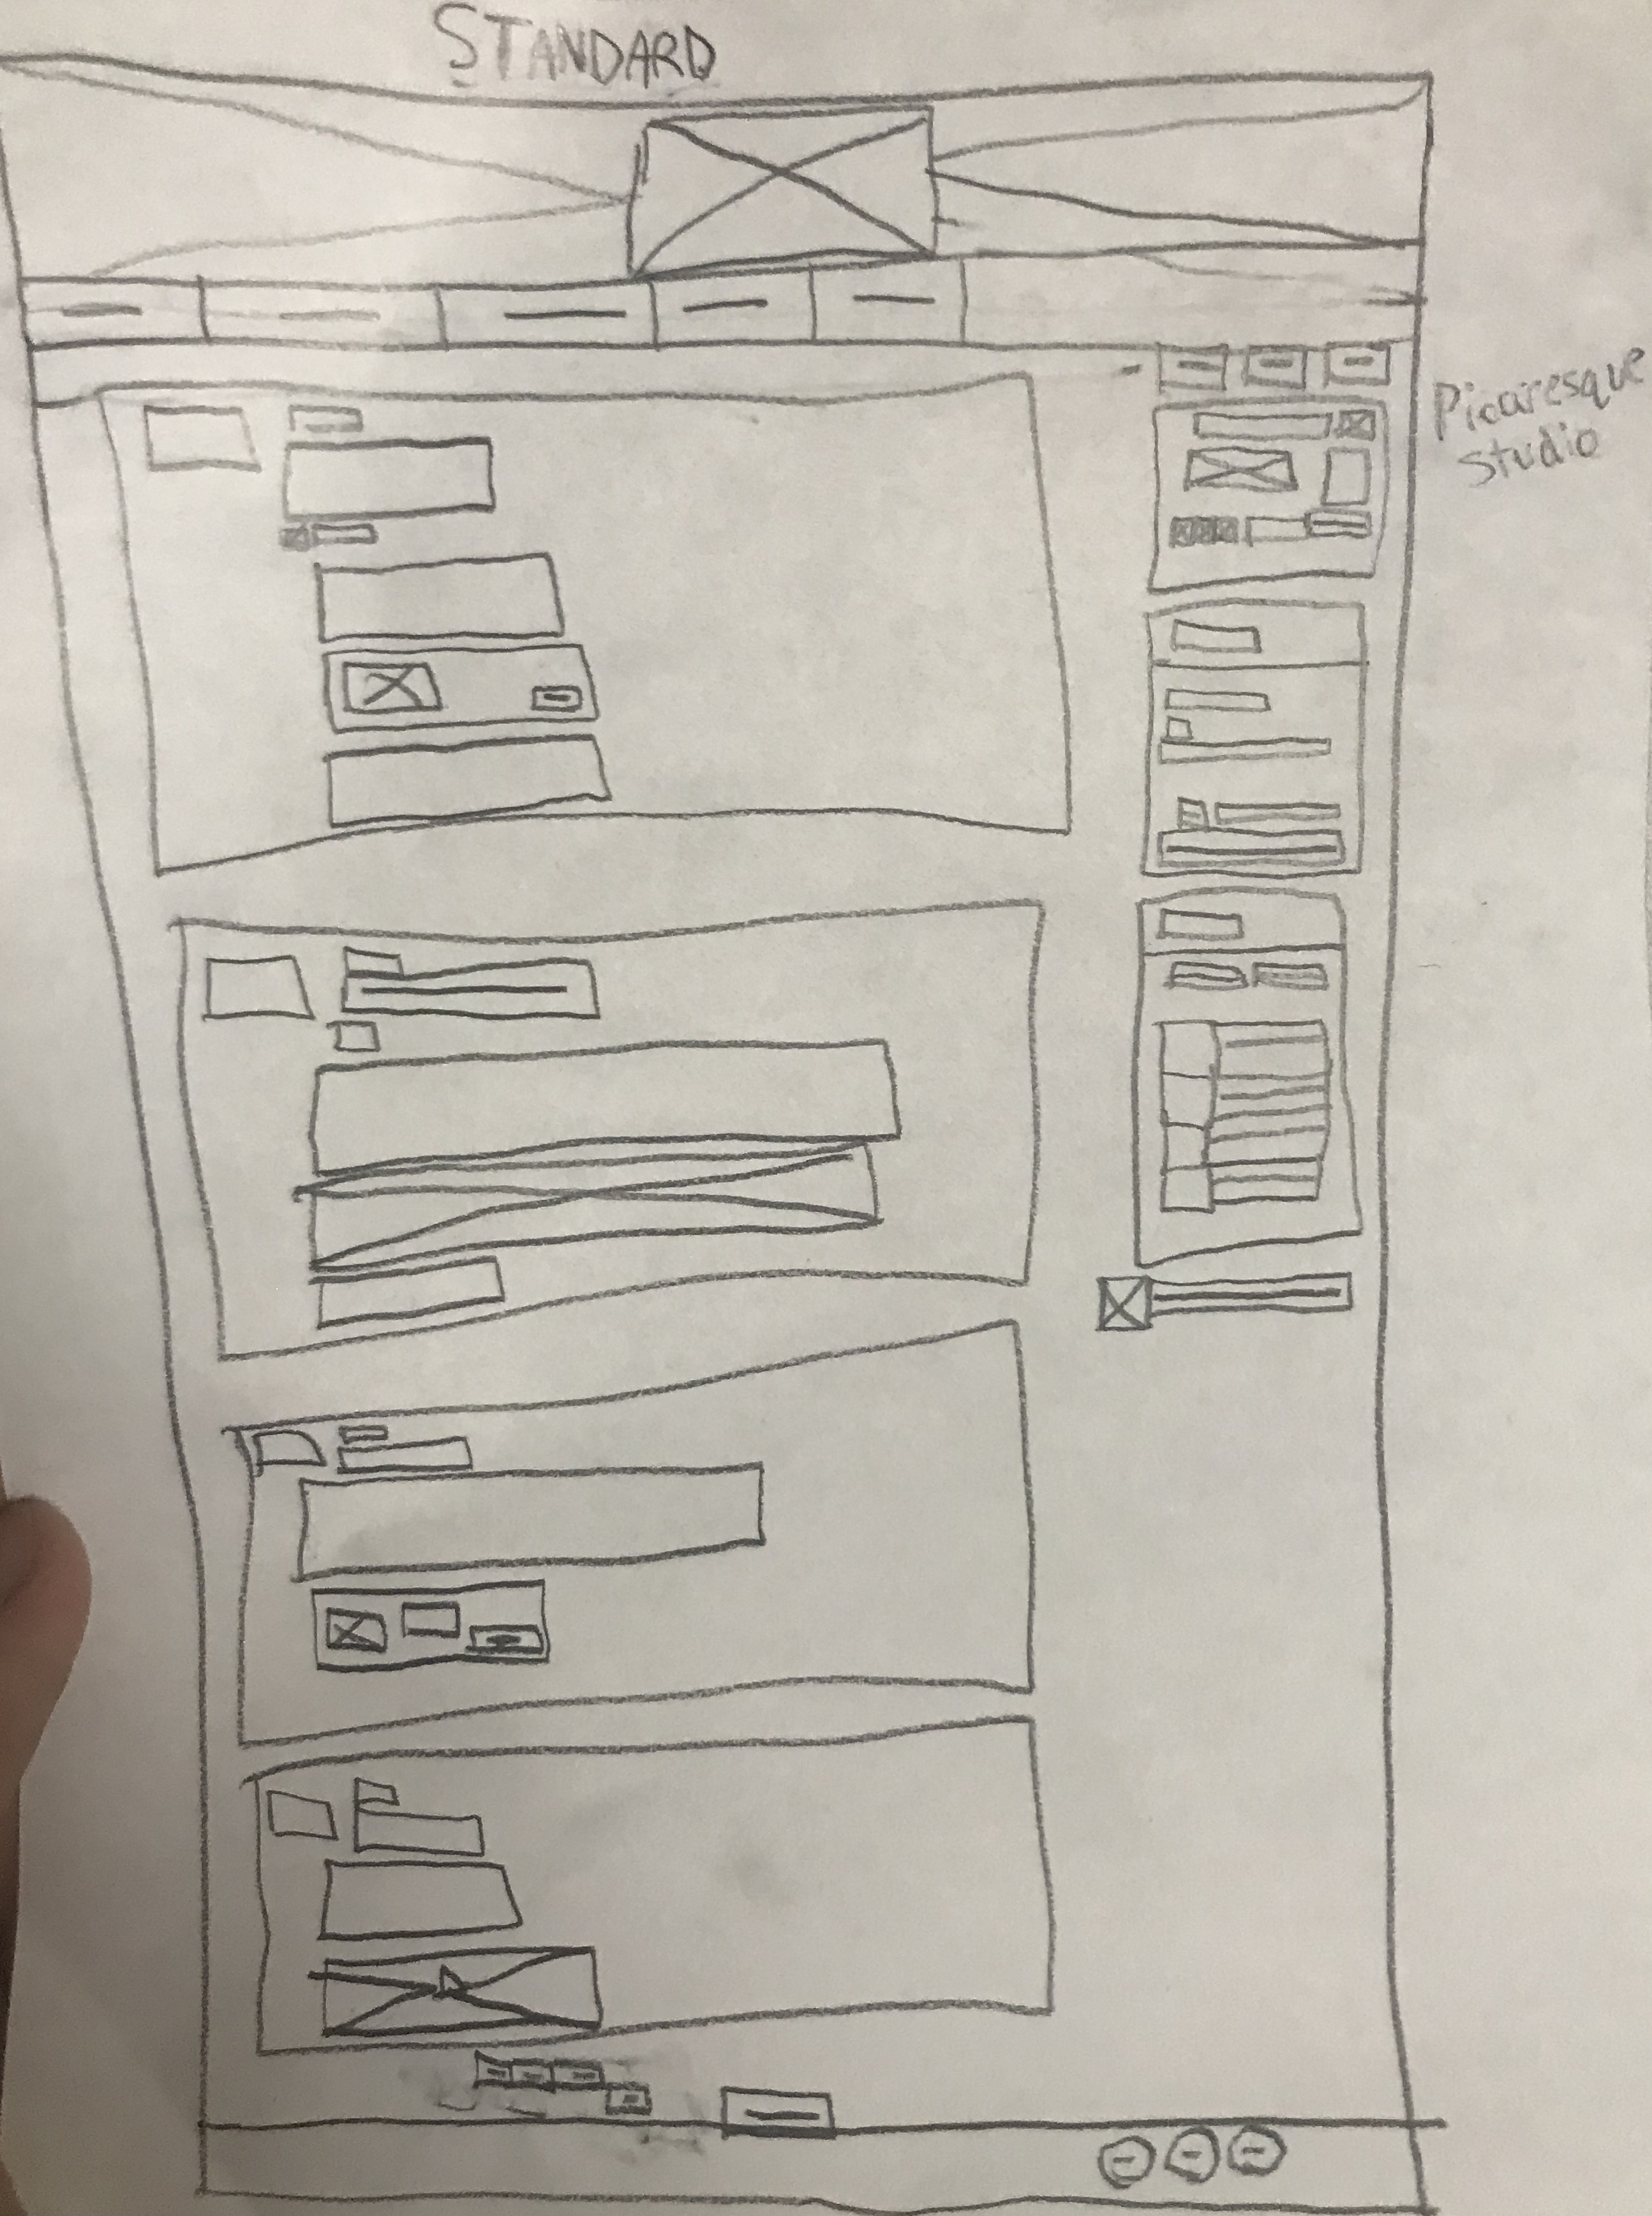 STANDARD
Picaresque
Studio